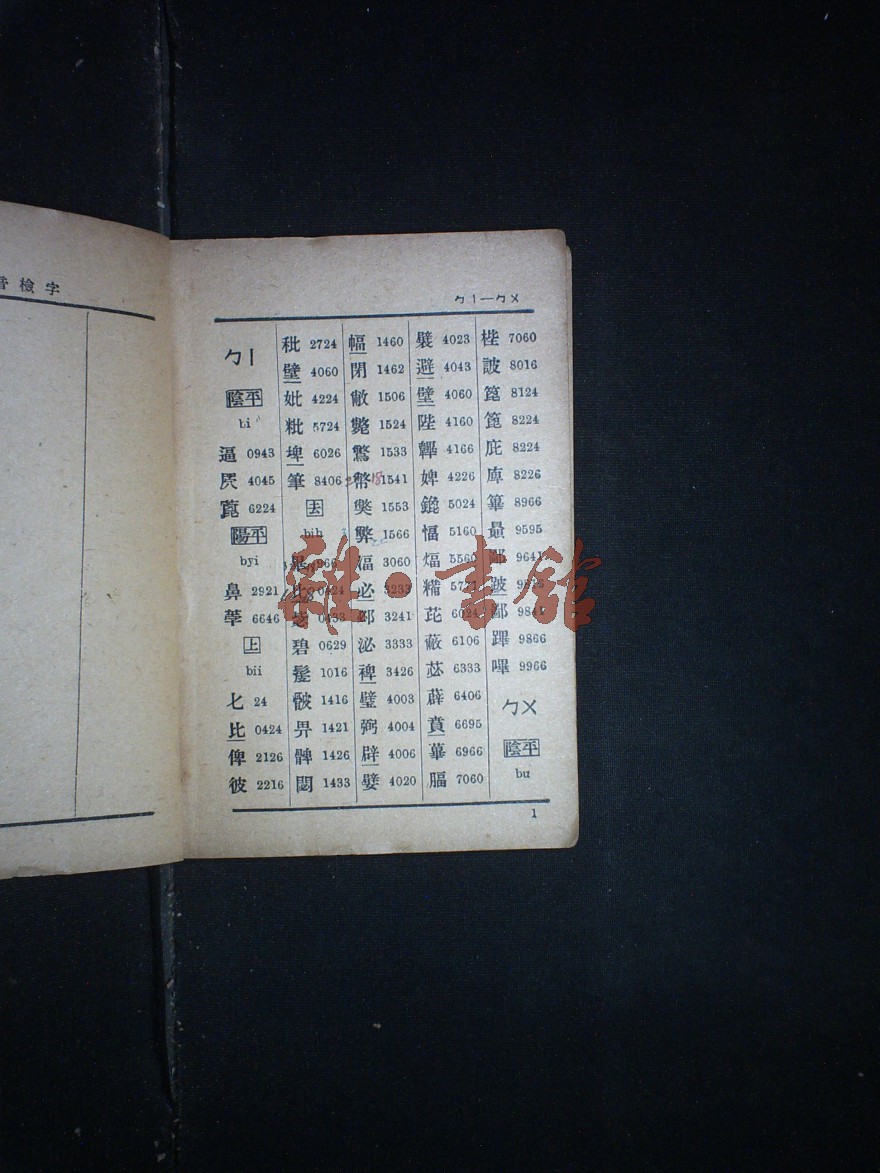 音檢字
ㄅㄧ—ㄅㄨ
ㄅㄧ
陰平
bi
逼 0943
屄 4045
萞 6224
陽平
byi
鼻 2921
荸 6646
上
bii
匕 24
比 0424
俾 2126
彼 2216
秕 2724
壁 4060
妣 4224
粃 5724
埤 6026
筆 8406
去
bih
比 0424
毖 0433
碧 0629
髲 1016
骳 1416
畀 1421
髀 1426
閟 1433
幅 1460
閉 1462
敝 1506
斃 1524
鷩 1533
幣 1541
獘 1553
弊 1566
湢 3060
必 3233
邲 3241
泌 3333
裨 3426
璧 4003
弼 4004
辟 4006
嬖 4020
襞 4023
避 4043
壁 4060
陛 4160
韠 4166
婢 4226
鎞 5024
愊 5160
煏 5560
糒 5721
芘 6024
蔽 6106
苾 6333
薜 6406
賁 6695
蓽 6966
腷 7060
梐 7060
詖 8016
篦 8124
箆 8224
庇 8224
庳 8226
篳 8966
贔 9595
鄪 9641
跛
鄙 9841
蹕 9866
嗶 9966
ㄅㄨ
陰平
bu
1
雜·書館